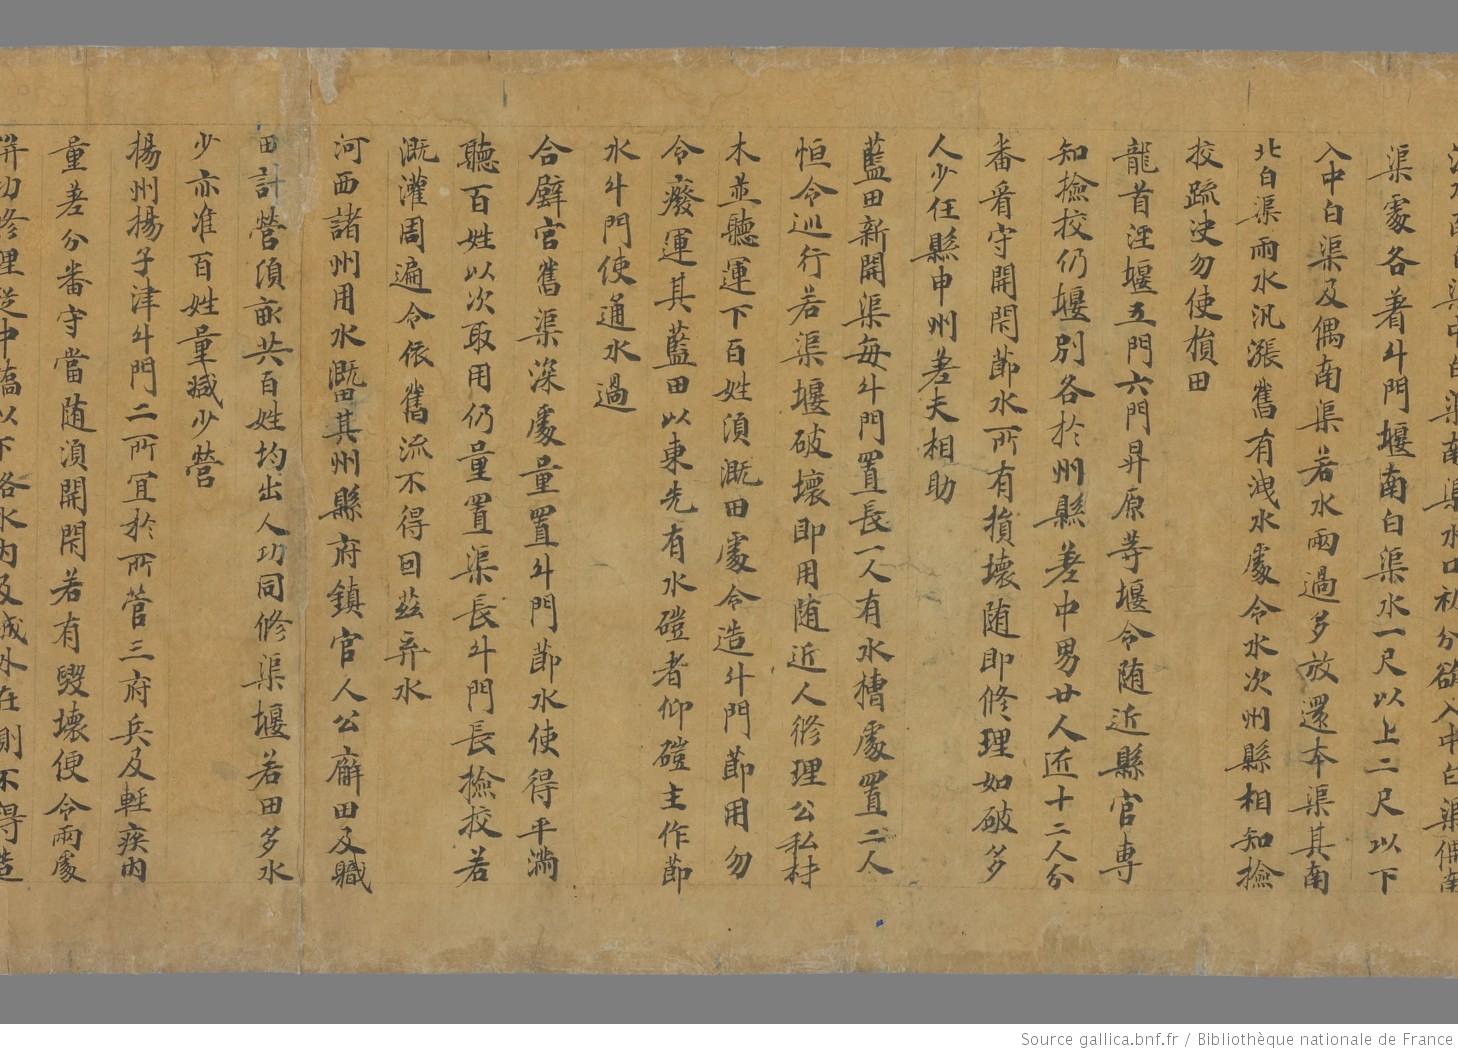 渠處各著斗門堰南白渠水一尺以上二尺以下
入中白渠及偶南渠若水兩過多放還本渠其南
北白渠雨水汎漲舊有洩水處令水次州縣相知撿
挍疏決勿使損田
龍首涇堰五門六門昇原等堰令随近縣官專
知撿挍仍堰別各於州縣差中男廿人近十二人分
番看守開閇節水所有損壞随即修理如破多
人少任縣申州差夫相助
藍田新開渠每斗門置長一人有水槽處置二人
恒令巡行若渠堰破壞即用随近人修理公私材
木並聽運下百姓須溉田處令造斗門節用勿
令廢運其藍田以東先有水磑者仰磑主作節
水斗門使通水過
合㠮官舊渠深處量置斗門節水使得平滿
聽百姓以次取用仍量置渠長斗門長撿挍若
溉灌周遍令依舊流不得回茲弃水
河西諸州用水溉田其州縣府鎮官人公廨田及職
田計營湏畝共百姓均出人功同修渠堰若田多水
少亦准百姓量减少營
揚州揚子津斗門二所宜於所管三府兵及輕疾內
量差分番守當随湏開閇若有毀壞便令兩處
併功修理從中橋以下洛水內及城外在側不得造
Source gallica.bnf.fr / Bibliothèque nationale de France